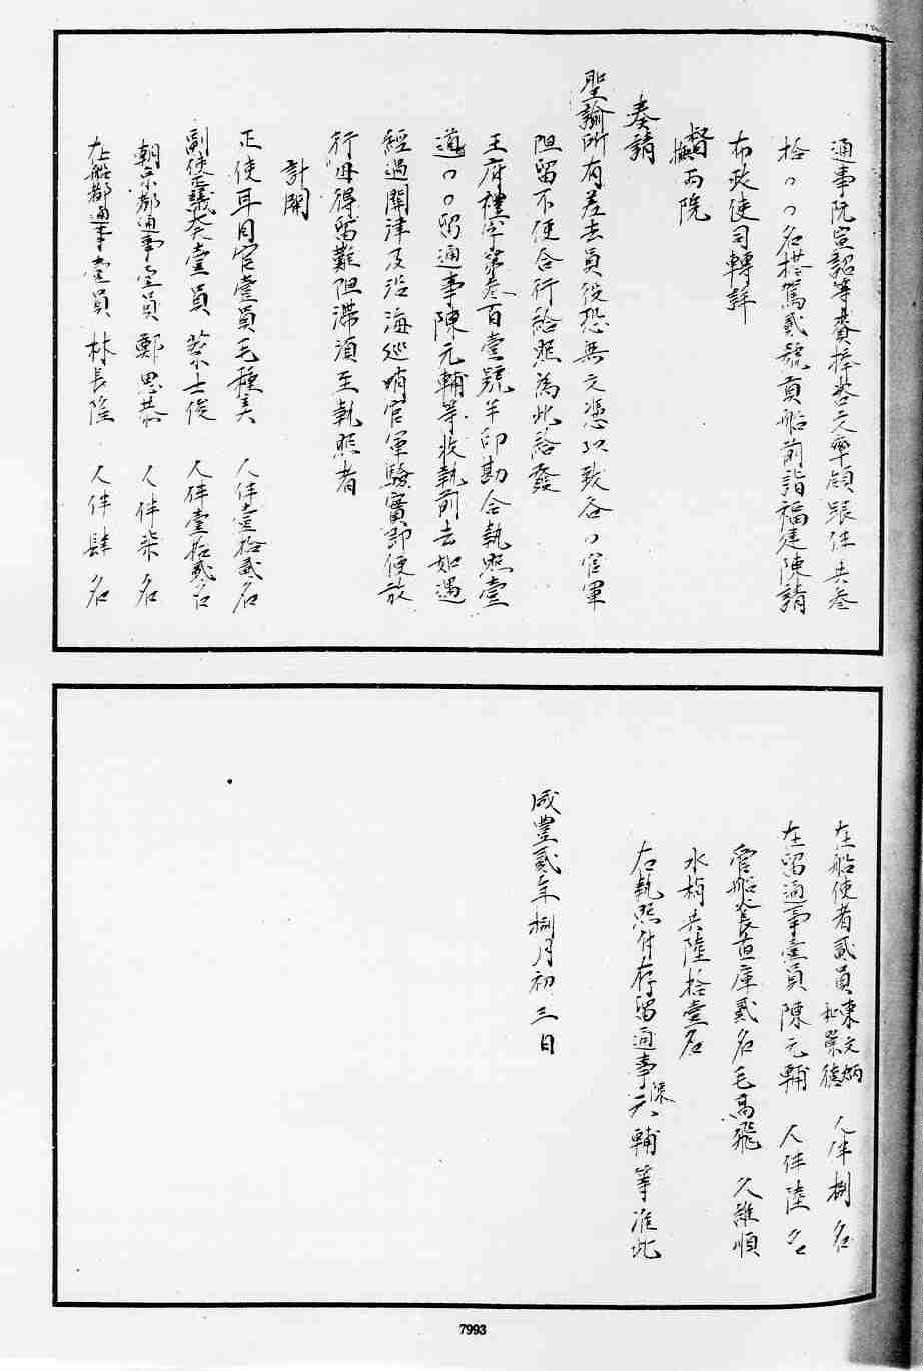 通事阮宣詔等賚捧咨文率領跟伴共叁
拾〻〻名搭駕貳號貢船前詣福建陳請
布政使司轉詳
督撫両院
奏請
聖諭所有差去員役恐無文憑以致各〻官軍
阻留不便合行給照為此給發
王府禮字第叁百壹號半印勘合執照壹
道〻〻留通事陳元輔等收執前去如遇
經過關津及沿海巡哨官軍驗實即便放
行毋得留難阻滞須至執照者
計開
正使耳目官壹員毛種美 人伴壹拾貳名
副使正議大夫壹員 蔡士俊 人伴壹拾貳名
朝京都通事壹員 鄭思恭 人伴柒名
在船都通事壹員 林長隆 人伴肆名
在船使者貳員 東文炳 榮德 人伴捌名
在留通事壹員陳元輔 人伴陸名
管船火長直庫貳名毛高飛 久誰順
水梢共陸拾壹名
右執照付存留通事陳元輔等准此
咸豐貳年捌月初三日
7993